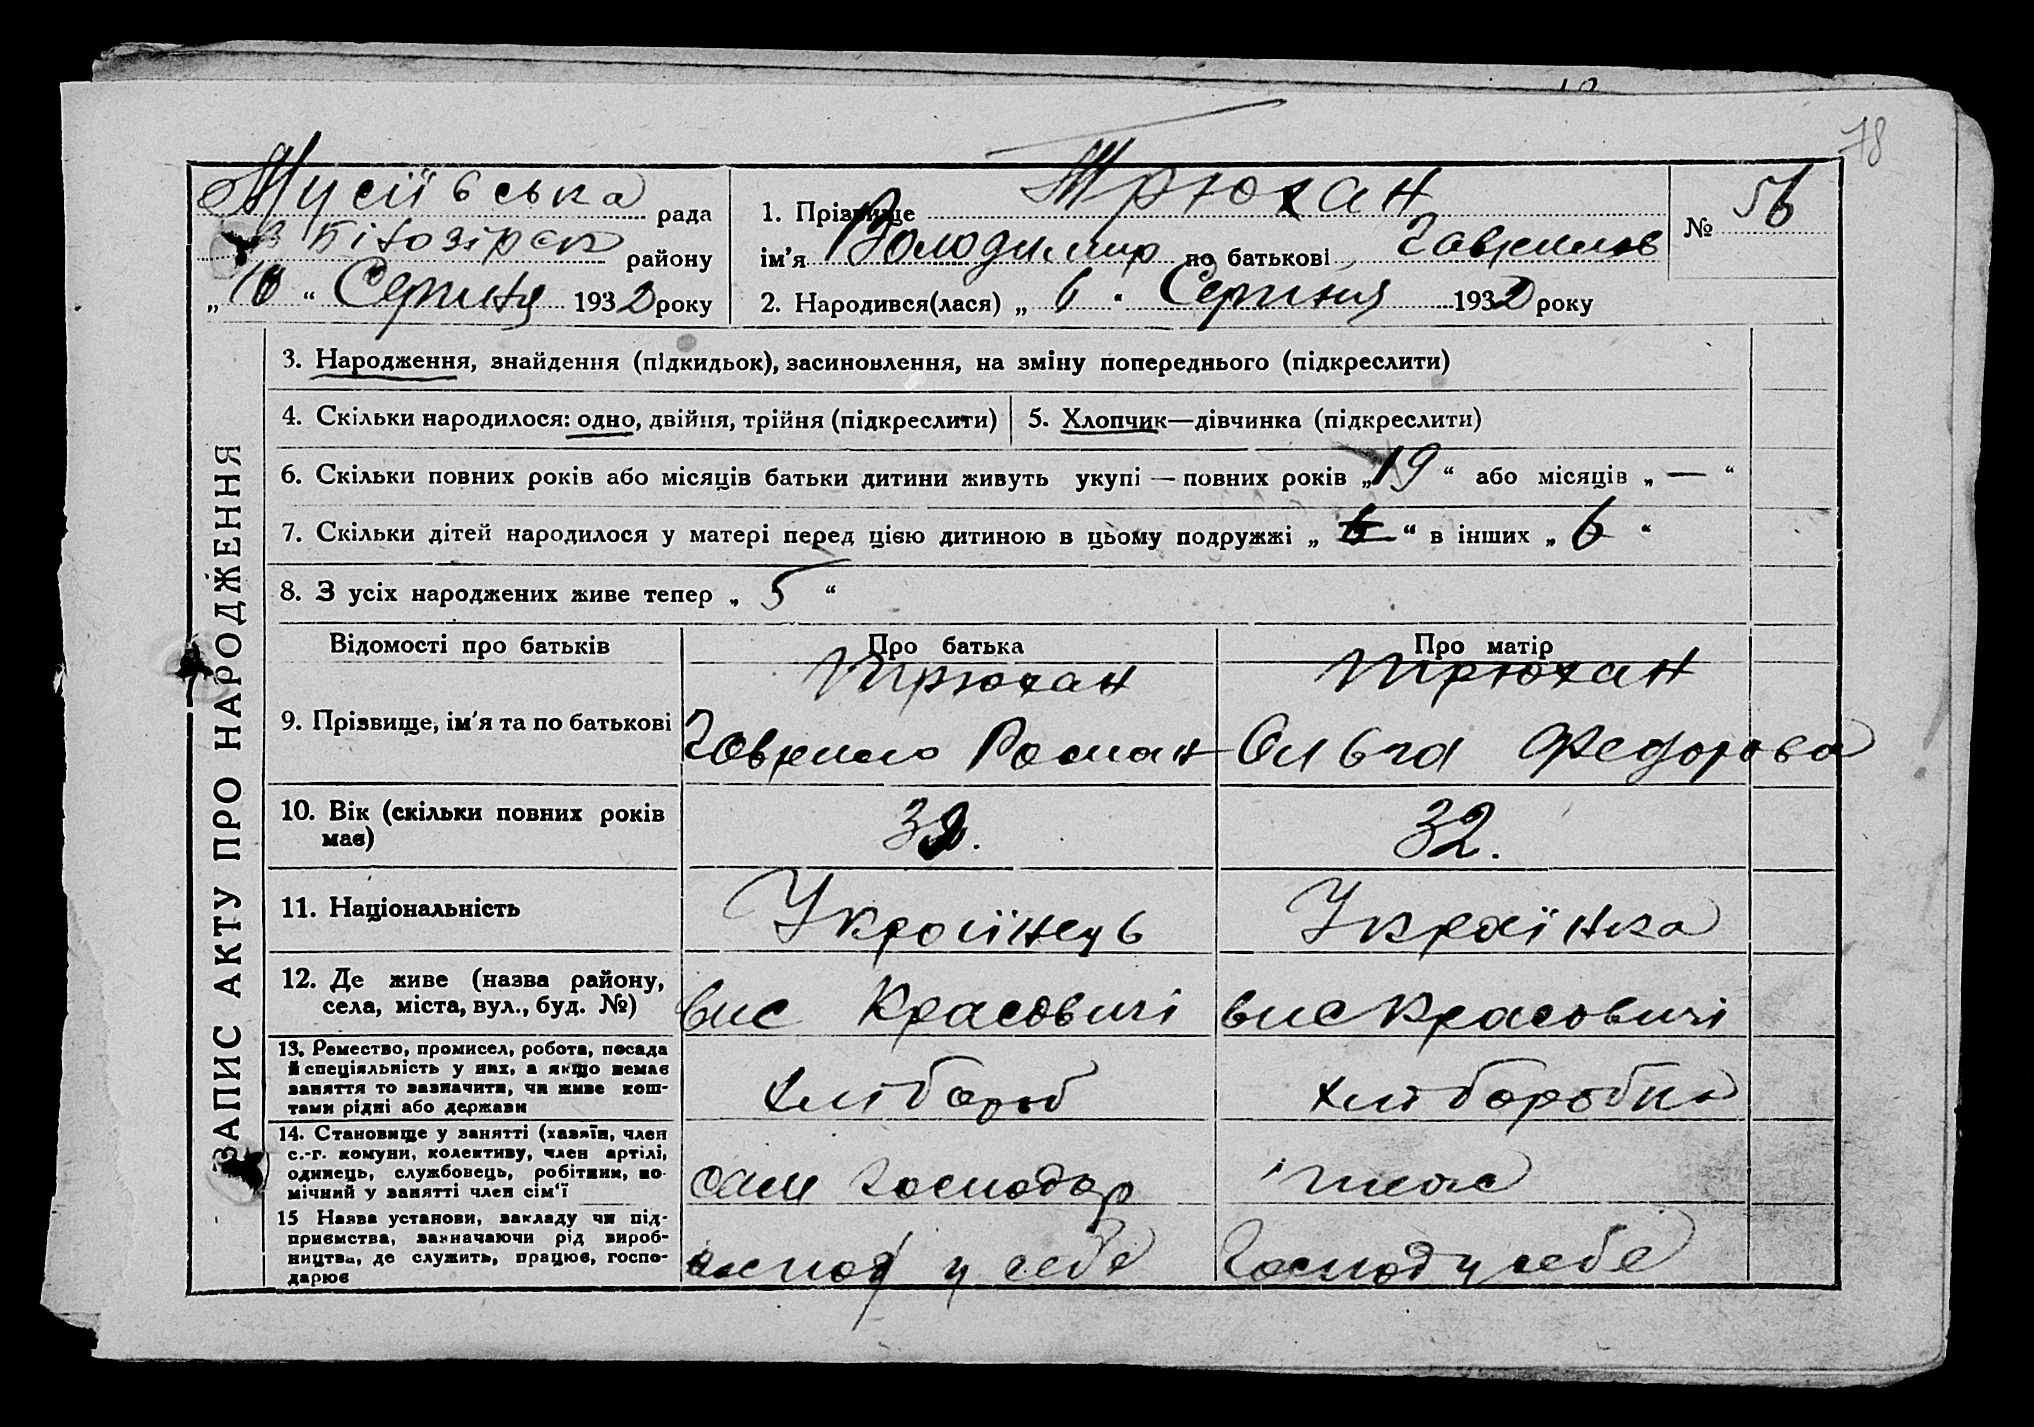 78
Мусіївська рада
району
„ 10 “ Серпня 1932 року
1. Прізвище Трюхан
ім’я Володимир по батькові Гаврилов
№ 56
2. Народився(лася) „ 6 “ Серпня 1932 року
ЗАПИС АКТУ ПРО НАРОДЖЕННЯ
3. Народження, знайдення (підкидьок), засиновлення, на зміну попереднього (підкреслити)
4. Скільки народилося: одно, двійня, трійня (підкреслити)
5. Хлопчик—дівчинка (підкреслити)
6. Скільки повних років або місяців батьки дитини живуть укупі — повних років „ 19 “ або місяців „ — “
7. Скільки дітей народилося у матері перед цією дитиною в цьому подружжі „ 6 “ в інших „ 6 “
8. З усіх народжених живе тепер „ 5 “
Відомості про батьків
Про батька
Про матір
9. Прізвище, ім’я та по батькові
Трюхан
Гаврило Роман
Трюхан
Ольга Федорова
10. Вік (скільки повних років
має)
32.
11. Національність
Українець
Українка
12. Де живе (назва району,
села, міста, вул., буд. №)
вис Красовичі
вис Красовичі
13. Ремество, промисел, робота, посада
й спеціяльність у них, а якщо немає
заняття то зазначити, чи живе кош-
тами рідні або держави
хлібороб
хліборобка
14. Становище у занятті (хазяїн, член
с.-г. комуни, колективу, член артілі,
одинець, службовець, робітник, по-
мічний у занятті член сім‘ї
сам господар
15 Назва установи, закладу чи під-
приємства, зазначаючи рід вироб-
ництва, де служить, працює, госпо-
дарює
господ у себе
Господ у себе